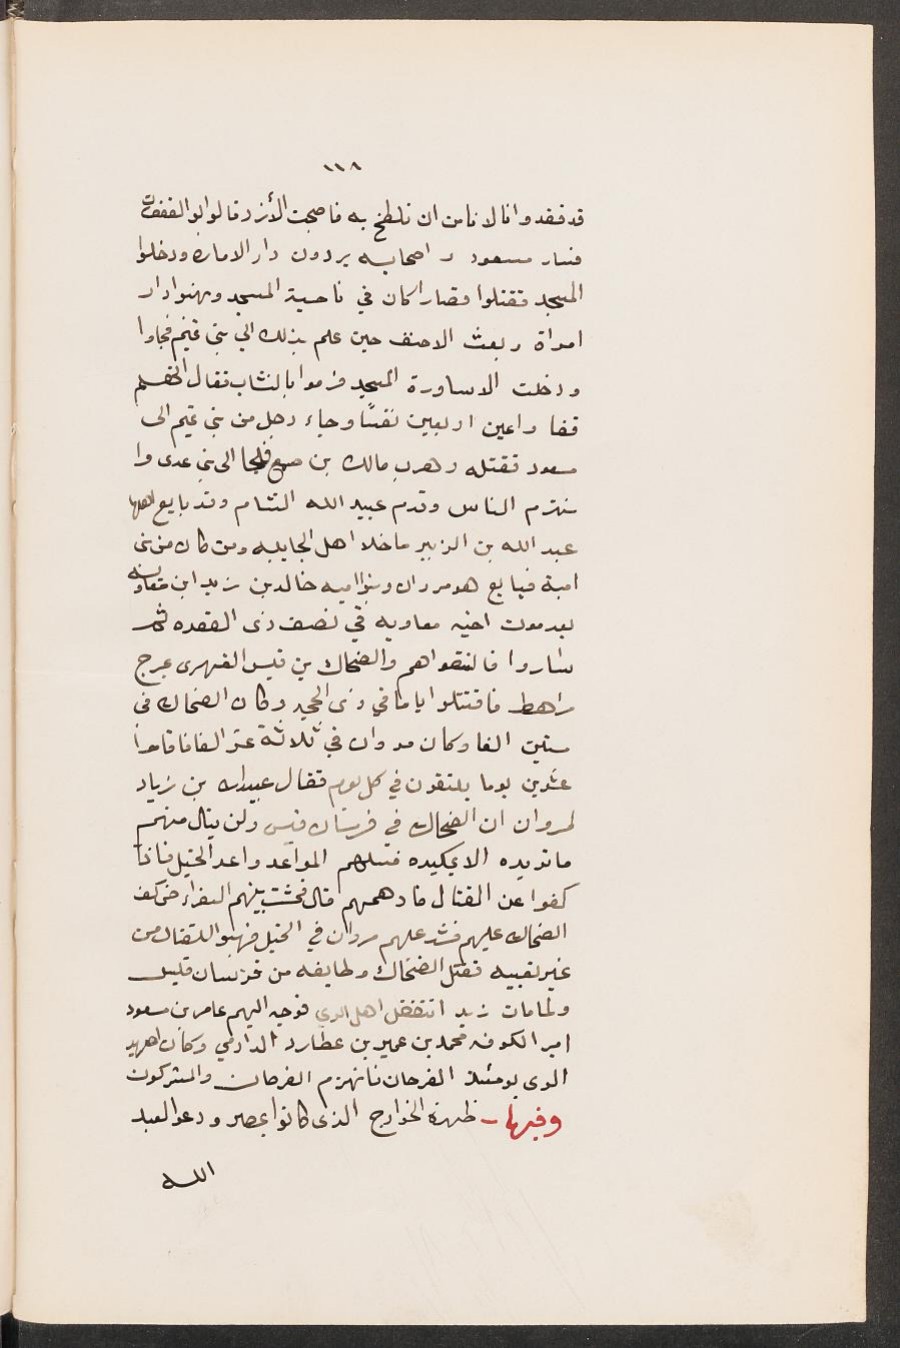 ١١٨
قد فقدوا فالا نامن ان نلطخ به فاصبحت الأزد قالوا
فسار مسعود و اصحابه يردون دار الامارة ودخلوا
المسجد فقتلوا قصارا كان في ناحية المسجد ونهبوا دار
امراة وبعث الاحنف حين علم بذلك الي بني تميم فجاوا
ودخلت الاساورة المسجد فرموا بالنشاب فقال
فقا واعين اربعين نفسًا وجاء رجل من بني تميم الى
مسعود فقتله وهرب مالك بن مسمع فلجا الى بني عدى وا
نهزم الناس وقدم عبيد الله الشام وقد بايع اهلها
عبد الله بن الزبير ما خلا اهل الجابيه ومن كان من بني
امية فبايع هو مروان وبنوا اميه خالد بن يزيد ابن معاويه
بعد موت اخيه معاويه في نصف ذى القعده ثم
ساروا فالتقوا هم والضحاك بن قيس الفهرى بمرج
راهط فاقتتلوا اياما في ذى الحجه وكان الضحاك فى
ستين الفا وكان مروان في ثلاثة عشر الفا فاقاموا
عشرين يوما يلتقون في كل يوم فقال عبيد الله بن زياد
لمروان ان الضحاك في فرسان قيس ولن ينال منهم
ما تريده الا بمكيده فسلهم الموادعه واعد الخيل فاذا
كفوا عن القتال فادهمهم قال فمشت بينهم السفراء حتى كف
الضحاك عليهم فشد عليهم مروان في الخيل فنهبوا للقتال من
غير تعبيه فقتل الضحاك وطايفه من فرسان قيس
ولما مات يزيد انتقض اهل الري فوجه اليهم عامر بن مسعود
امير الكوفه محمد بن عمير بن عطارد الدارمي وكان
الرى يومئذ الفرخان فانهزم الفرخان والمشركون
وفيها ظهرت الخوارج الذى كانوا بمصر ودعوا لعبد
الله